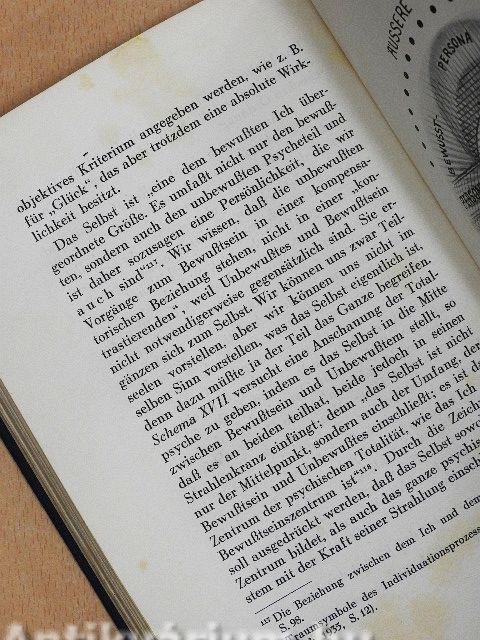 objektives Kriterium angegeben werden, wie z. B.
für „Glück“, das aber trotzdem eine absolute Wirk-
lichkeit besitzt.
Das Selbst ist „eine dem bewußten Ich über-
geordnete Größe. Es umfaßt nicht nur den bewuß-
ten, sondern auch den unbewußten Psycheteil und
ist daher sozusagen eine Persönlichkeit, die wir
auch sind“¹¹⁷. Wir wissen, daß die unbewußten
Vorgänge zum Bewußtsein in einer kompensa-
torischen Beziehung stehen, nicht in einer „kon-
trastierenden“, weil Unbewußtes und Bewußtsein
nicht notwendigerweise gegensätzlich sind. Sie er-
gänzen sich zum Selbst. Wir können uns zwar Teil-
seelen vorstellen, aber wir können uns nicht im
selben Sinn vorstellen, was das Selbst eigentlich ist,
denn dazu müßte ja der Teil das Ganze begreifen.
Schema XVII versucht eine Anschauung der Total-
psyche zu geben, indem es das Selbst in die Mitte
zwischen Bewußtsein und Unbewußtem stellt, so
daß es an beiden teilhat, beide jedoch in seinen
Strahlenkranz einfängt; denn „das Selbst ist nicht
nur der Mittelpunkt, sondern auch der Umfang, der
Bewußtsein und Unbewußtes einschließt; es ist das
Zentrum der psychischen Totalität, wie das Ich
Bewußtseinszentrum ist“¹¹⁸. Durch die Zeich-
soll ausgedrückt werden, daß das Selbst sowo
Zentrum bildet, als auch das ganze psychis
stem mit der Kraft seiner Strahlung einsch
¹¹⁷ Die Beziehung zwischen dem Ich und dem
S. 98.
Traumsymbole des Individuationsprozess
1935, S. 12).
ÄUSSERE
PERSONA
Antikvárium.hu